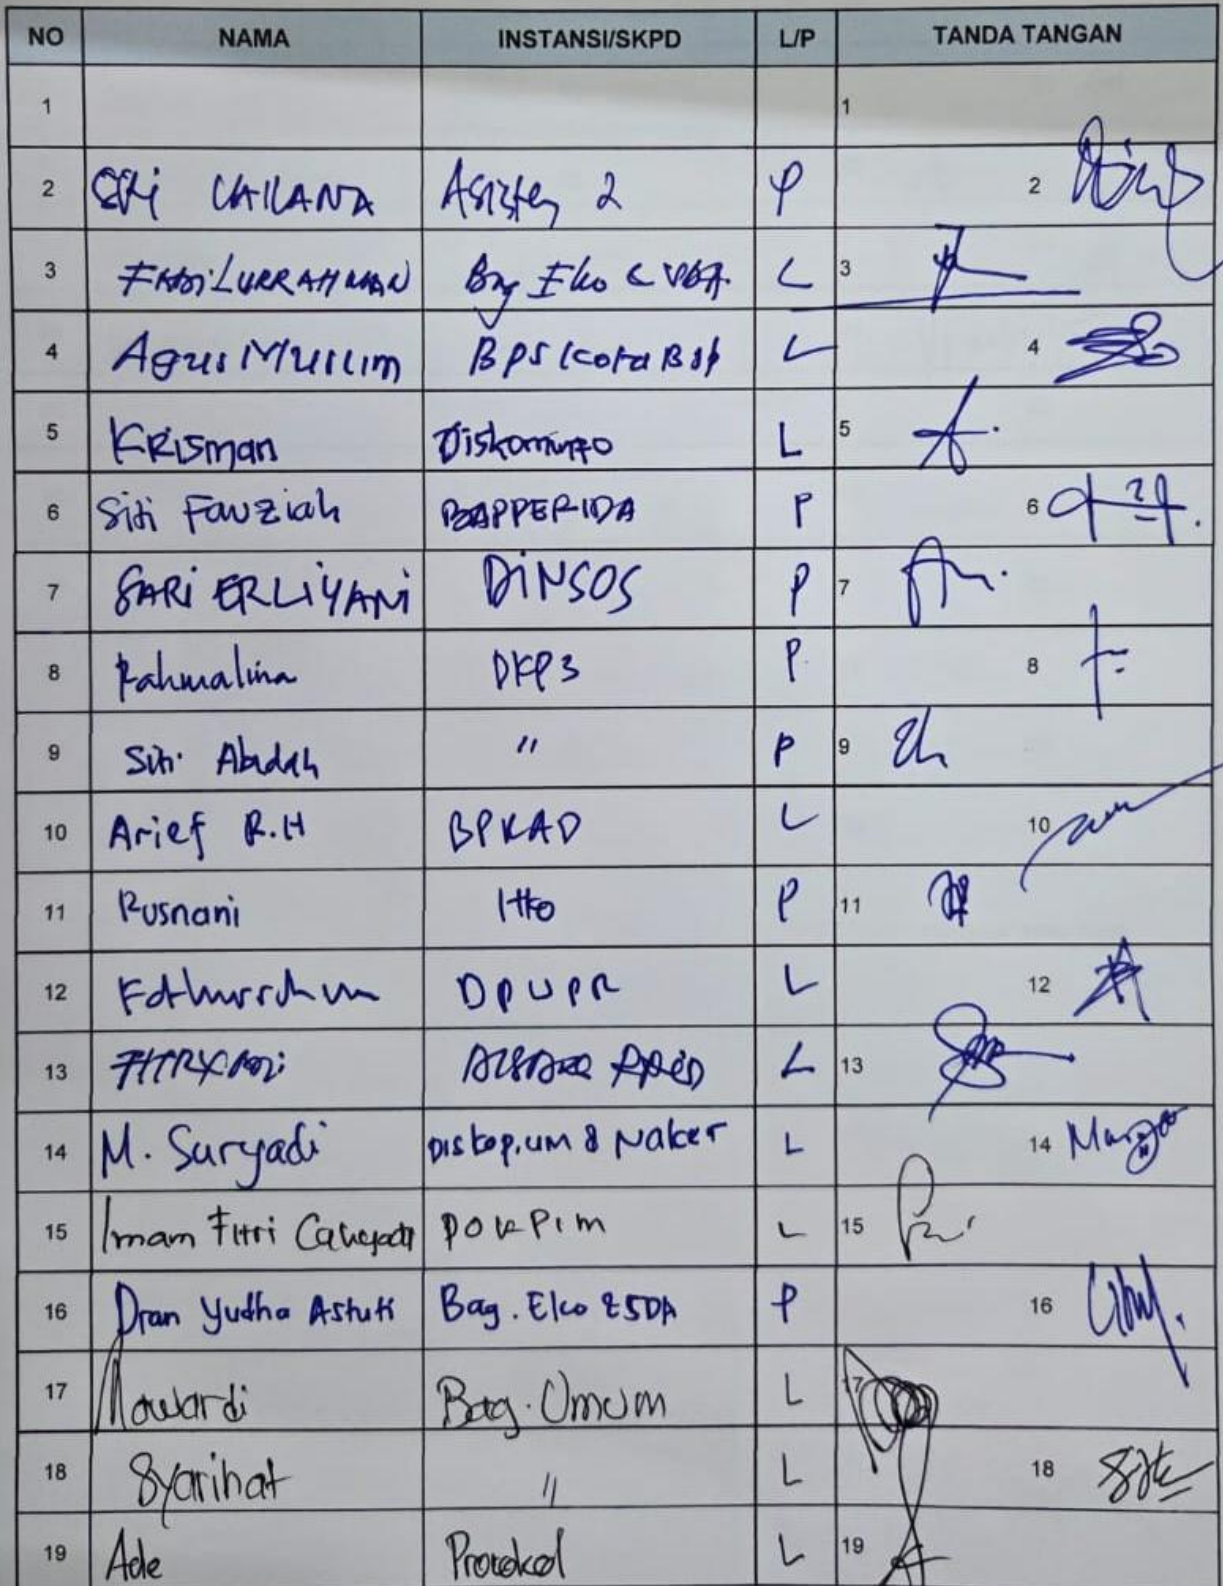 NO NAMA INSTANSI/SKPD L/P TANDA TANGAN
1 1
2 Siti LAILANA Asisten 2 P 2
3 FADiLURRAHMAN Bag Eko & L 3
4 Agus Muslim BPS Kota L 4
5 KRisman Diskominfo L 5
6 Siti Fauziah BAPPERIDA P 6
7 SARi ERLiYANi DiNSOS P 7
8 Rahmalina DKP3 P 8
9 Siti Abadah " P 9
10 Arief R.H BPKAD L 10
11 Rusnani Itko P 11
12 DPUPR L 12
13 L 13
14 M. Suryadi Diskop.um & Naker L 14
15 Imam Fitri POKPIM L 15
16 Dian Yudha Astuti Bag. Eko & SDA P 16
17 Mawardi Bag. Umum L 17
18 Syarihat " L 18
19 Ade Protokol L 19